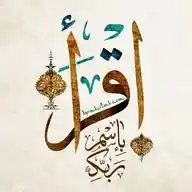 اقرأ
باسم
ربك